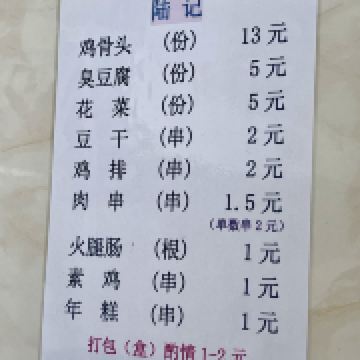 陆记
鸡骨头 (份) 13元
臭豆腐 (份) 5元
花菜 (份) 5元
豆干 (串) 2元
鸡排 (串) 2元
肉串 (串) 1.5元
(单数串2元)
火腿肠 (根) 1元
素鸡 (串) 1元
年糕 (串) 1元
打包(盒)酌情1-2元